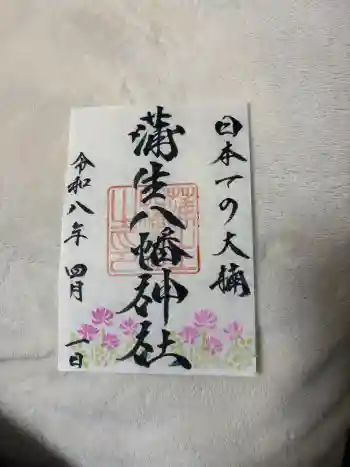 日本一の大楠
蒲生八幡神社
令和八年 四月 一日